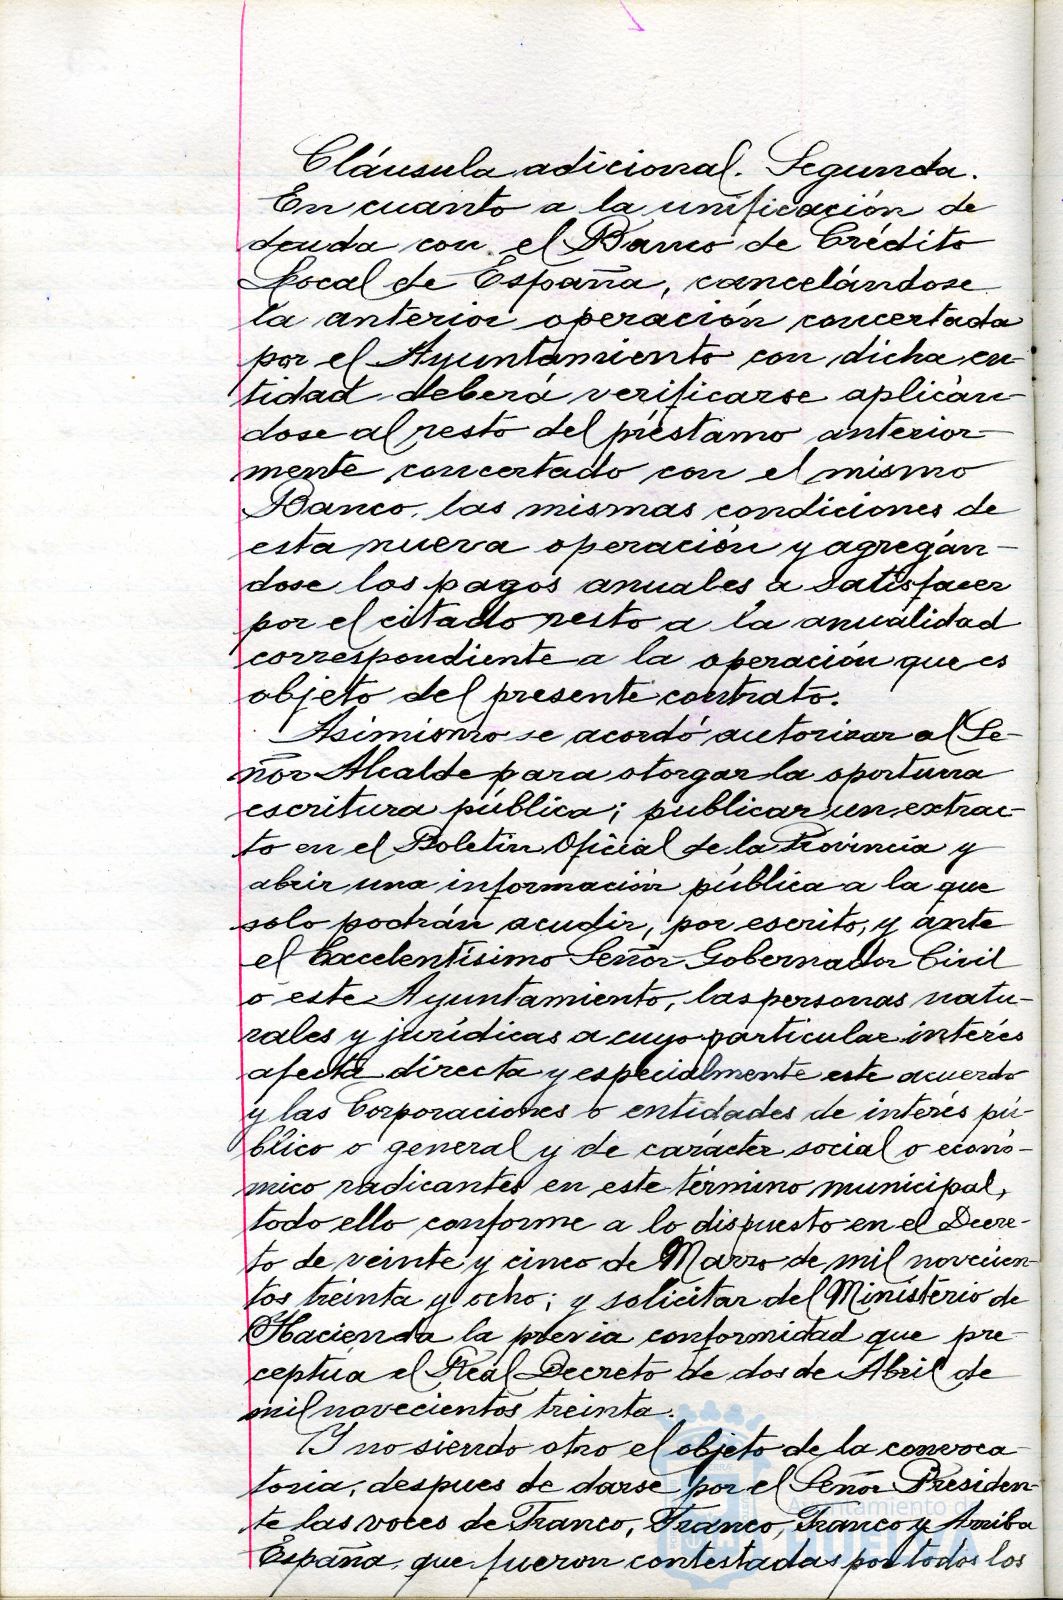 Cláusula adicional. Segunda.
En cuanto a la unificación de
deuda con el Banco de Crédito
Local de España, cancelándose
la anterior operación concertada
por el Ayuntamiento con dicha en-
tidad deberá verificarse aplicán-
dose al resto del préstamo anterior-
mente concertado con el mismo
Banco, las mismas condiciones de
esta nueva operación y agregán-
dose los pagos anuales a satisfacer
por el citado resto a la anualidad
correspondiente a la operación que es
objeto del presente contrato.
Asimismo se acordó autorizar al Se-
ñor Alcalde para otorgar la oportuna
escritura pública; publicar un extrac-
to en el Boletin Oficial de la Provincia y
abrir una información pública a la que
solo podrán acudir, por escrito, y ante
el Excelentísimo Señor Gobernador Civil
o este Ayuntamiento, las personas natu-
rales y jurídicas a cuyo particular interés
afecta directa y especialmente este acuerdo
y las Corporaciones o entidades de interés pú-
blico o general y de carácter social o econó-
mico radicantes en este término municipal,
todo ello conforme a lo dispuesto en el Decre-
to de veinte y cinco de Marzo de mil novecien-
tos treinta y ocho; y solicitar del Ministerio de
Hacienda la previa conformidad que pre-
ceptua el Real Decreto de dos de Abril de
mil novecientos treinta.
Y no siendo otro el objeto de la convoca
toria, despues de darse por el Señor Presiden-
te las voces de Franco, Franco, Franco y Arriba
España, que fueron contestadas por todos los
Ayuntamiento de
HUELVA